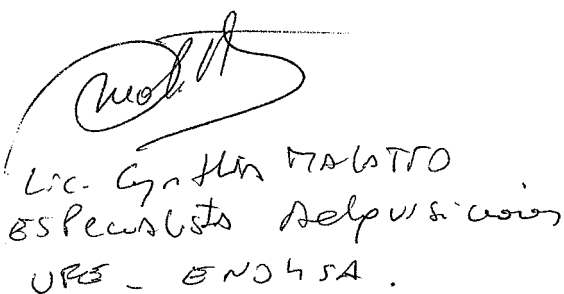 Lic. Cynthia MALATTO
ESPecialista Adquisiciones
UPE - ENOHSA.